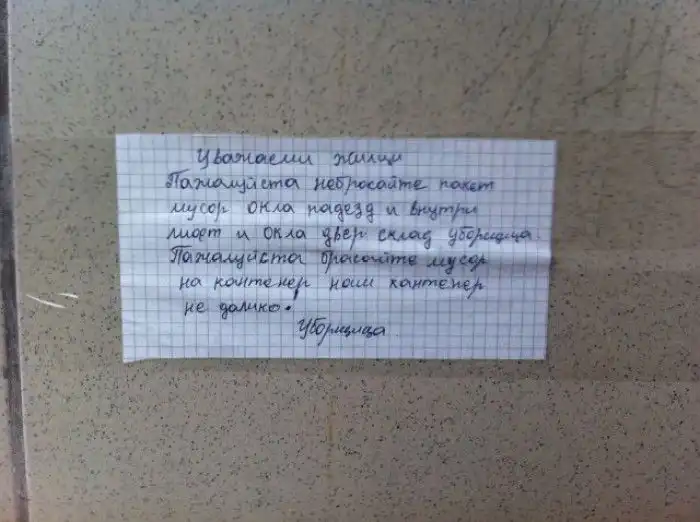 Уважаеми жилци
Пажалуйста небросайте пакет
мусор окла падезд и внутри
лифт и окла двер склад уборщица.
Пажалуйста брасайте мусор
на кантенер наш кантенер
не далико!
Уборщица